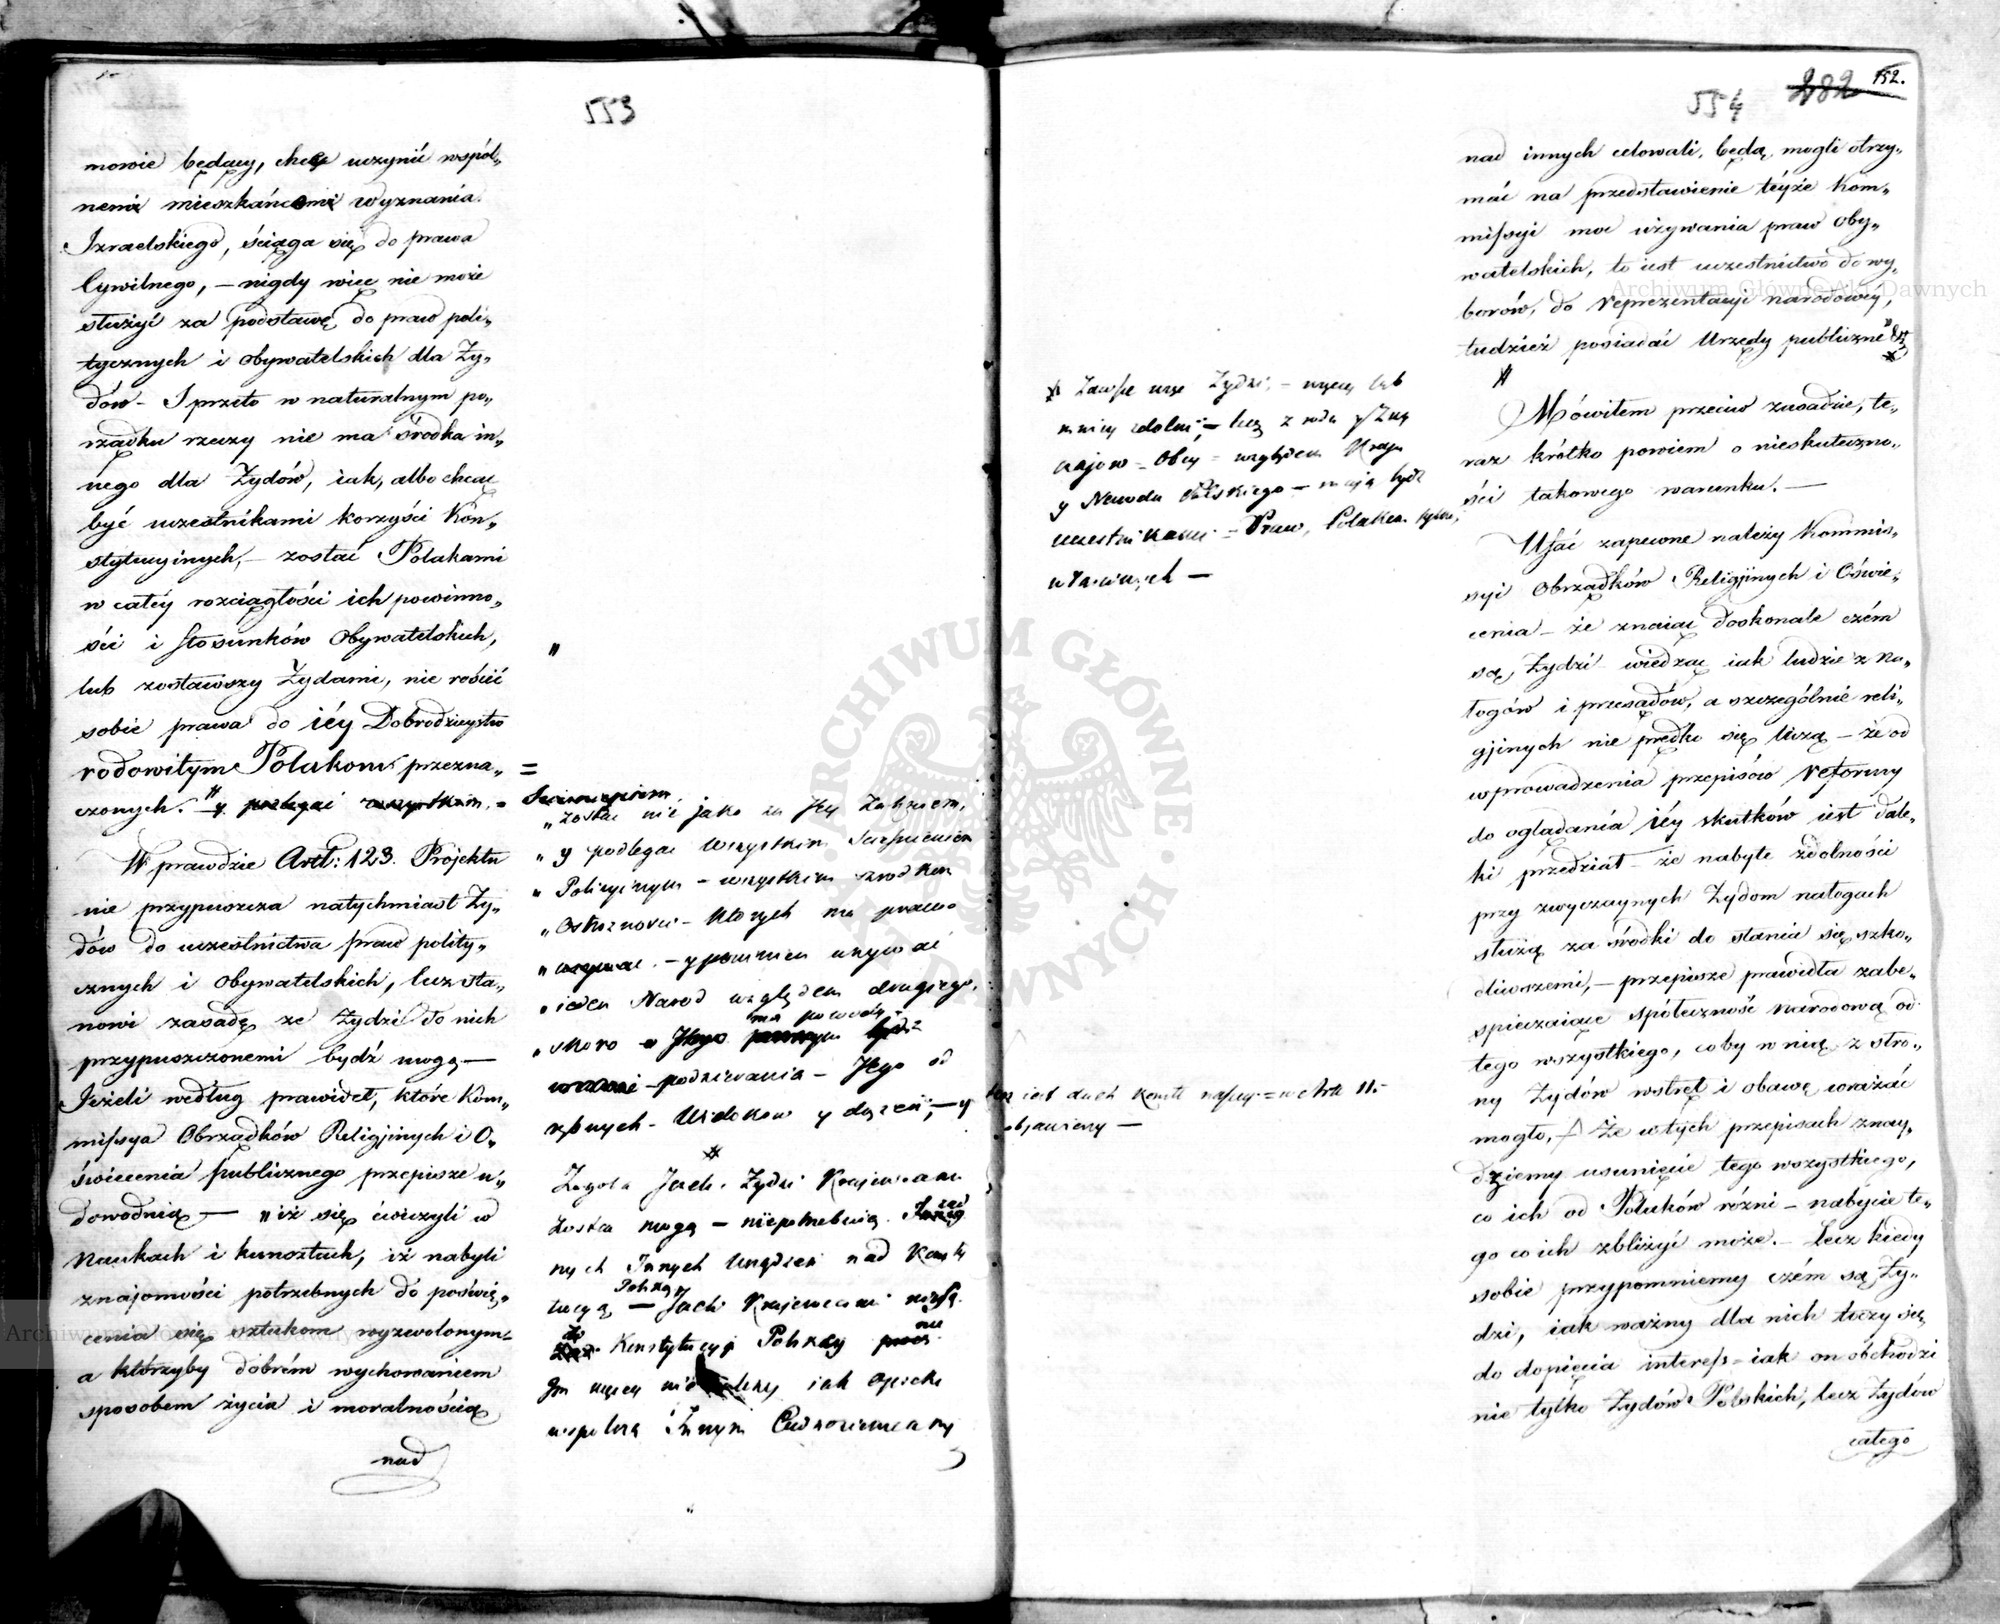 553
mowie będący, chcą uczynić wspól„
nemi mieszkańcomi wyznania
Izraelskiego, ściąga się do prawa
Cywilnego, – nigdy więc nie może
służyć za podstawę do praw poli„
tycznych i obywatelskich dla Ży„
dów – I przeto w naturalnym po„
rządku rzeczy nie ma środka in„
nego dla Żydów, iak, albo chcąc
być uczestnikami korzyści Kon„
stytucyinych, – zostać Polakami
w całéy rozciągłości ich powinno„
ści i stosunków Obywatelskich,
lub zostawszy Żydami, nie rościć
sobie prawa do iéy Dobrodzieystw
rodowitym Polakom przezna„
czonych. y podlegać wszystkim
Wprawdzie Art: 123. Projektu
nie przypuszcza natychmiast Ży„
dów do uczestnictwa praw polity„
cznych i Obywatelskich, lecz sta„
nowi zasadę ze Żydzi do nich
przypuszczonemi bydź mogą –
Jeżeli według prawideł, które Kom„
missya Obrządków Religijnych i O„
świecenia publicznego przepisze u„
dowodnią – „iż się ćwiczyli w
Naukach i kunsztach, iż nabyli
znajomości potrzebnych do poświę„
cenia się sztukom wyzwolonym –
a którzyby dobrém wychowaniem
sposobem życia i moralnością
nad
„zostać nie jako za
„y podlegac wszystkim
„Policyinym – wszystkim srodkom
„Ostroznosci – ktorych ma prawo
– y powinien uzywać
„ieden Narod względem drugiego,
„skoro ma powody
podzierania – Jego od
rębnych – Widokow y dązeń, – y ten iest duch Konst naszey = w Arte 11. –
objawiony –
Żydzi Kraiowcami
Zostac mogą – niepotrzebuią
nych Innych Urządzeń nad Konsty
tucyą Polską – Jeśli Kraiowcami niesą
do Konstytucyi Polskiey nie
iak opieka
wspolna Innym Cudzoziemcom
554 282 152.
✻ Zawsze więc Żydzi, – więcey lub
mniey zdolni, – lecz z rodu y Zwy
czajow – Obcy – względem Kraju
y Narodu Polskiego – mają bydz
uczestnikami – Praw, Polakom tylko,
własciwych –
nad innych celowali, będą mogli otrzy„
mać na przedstawienie téyże Kom„
missyi moc używania praw Oby„
watelskich, to iest uczestnictwo do wy„
borów, do reprezentacyi narodowey,
tudzież posiadać Urzędy publiczne
Mówiłem przeciw zasadzie, te„
raz krótko powiem o nieskuteczno„
ści takowego warunku. –
Ufać zapewne należy Kommis„
syi Obrządków Religijnych i Oświe„
cenia – że znaiąc doskonale czém
są, Żydzi – wiedząc iak ludzie z na„
łogów i przesądów, a szczególnie reli„
gijnych nie prędko się leczą – że od
wprowadzenia przepisów reformy
do oglądania iéy skutków iest dale„
ki przedział – że nabyte zdolności
przy zwyczaynych Żydom nałogach
służą za środki do stania się szko„
dliwszemi, – przepisze prawidła zabe„
spieczaiące społeczność narodową od
tego wszystkiego, coby w nią z stro„
ny Żydów wstręt i obawę wrażać
mogło, – Że w tych przepisach znay„
dziemy usunięcie tego wszystkiego,
co ich od Polaków różni – nabycie te„
go co ich zbliżyć może. – Lecz kiedy
sobie przypomniemy czém są Ży„
dzi, iak ważny dla nich toczy się
do dopięcia interess – iak on obchodzi
nie tylko Żydów Polskich, lecz Żydów
całego
Archiwum Główne Akt Dawnych
ARCHIWUM GŁÓWNE AKT DAWNYCH